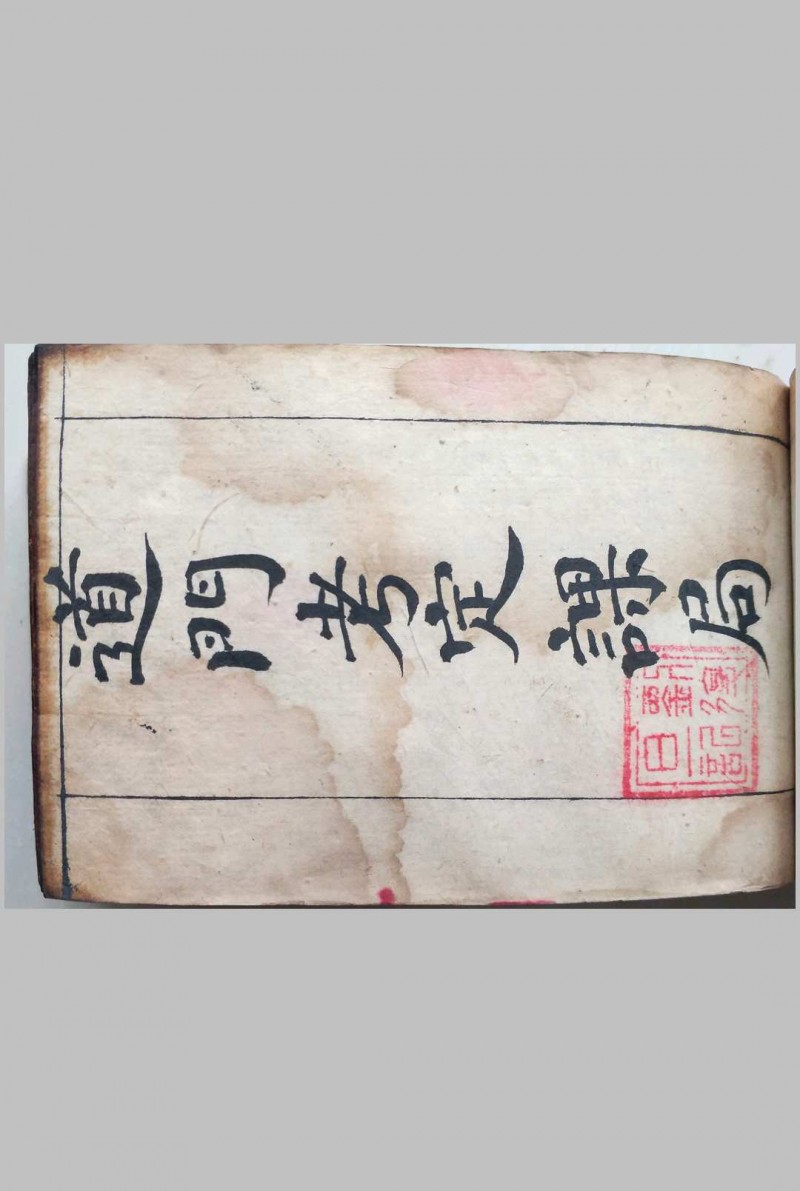 道門考定課局